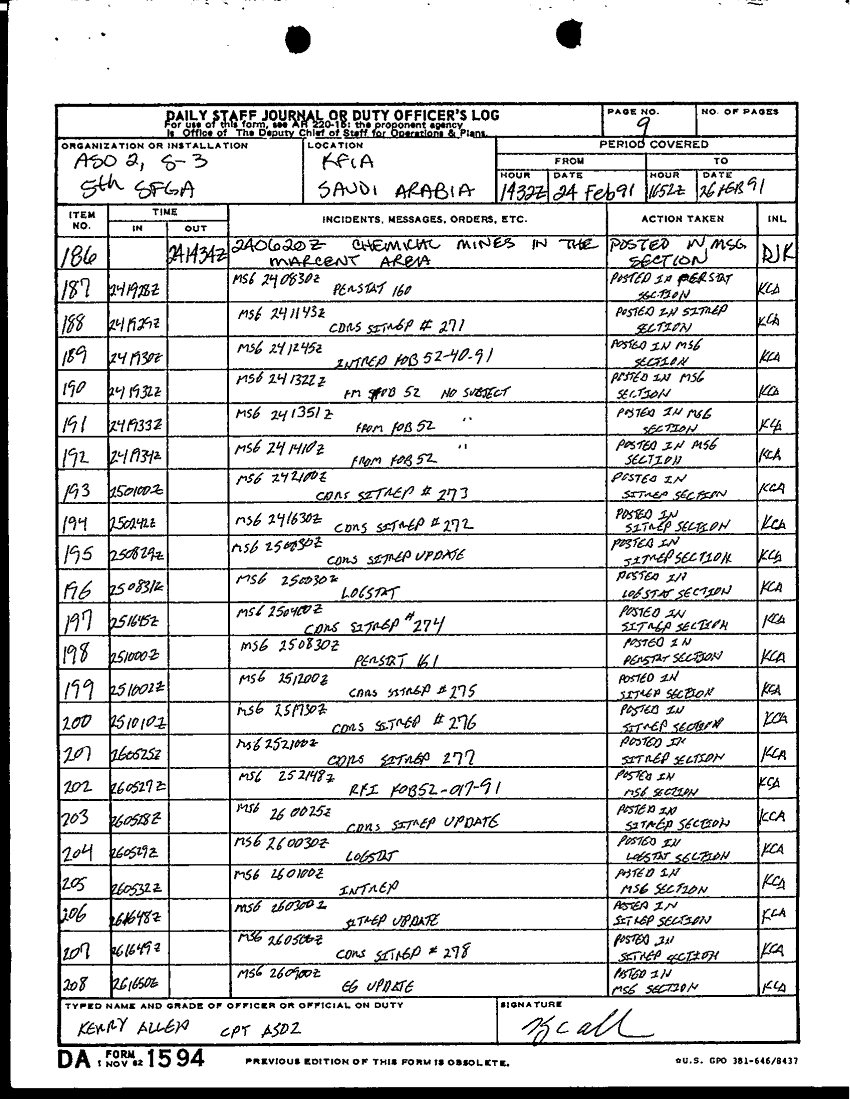 DAILY STAFF JOURNAL OR DUTY OFFICER'S LOG
For use of this form, see AR 220-15; the proponent agency
is Office of The Deputy Chief of Staff for Operations & Plans.
PAGE NO.
9
NO. OF PAGES
ORGANIZATION OR INSTALLATION
ASO 2, S-3
5th SFGA
LOCATION
KFIA
SAUDI ARABIA
PERIOD COVERED
FROM TO
HOUR DATE HOUR DATE
1432Z 24 Feb 91 1652Z 26 FEB 91
ITEM NO. TIME IN OUT INCIDENTS, MESSAGES, ORDERS, ETC. ACTION TAKEN INL
186 241434Z 240620Z CHEMICAL MINES IN THE MARCENT AREA POSTED IN MSG SECTION DJK
187 241928Z MSG 240830Z PERSTAT 160 POSTED IN PERSTAT SECTION KCA
188 241929Z MSG 241143Z CDRS SITREP # 271 POSTED IN SITREP SECTION KCA
189 241930Z MSG 241245Z INTREP FOB 52-40-91 POSTED IN MSG SECTION KCA
190 241932Z MSG 241322Z FM FOB 52 NO SUBJECT POSTED IN MSG SECTION KCA
191 241933Z MSG 241351Z FROM FOB 52 " POSTED IN MSG SECTION KCA
192 241934Z MSG 241410Z FROM FOB 52 " POSTED IN MSG SECTION KCA
193 250100Z MSG 242100Z CDRS SITREP # 273 POSTED IN SITREP SECTION KCA
194 250242Z MSG 241630Z CDRS SITREP # 272 POSTED IN SITREP SECTION KCA
195 250829Z MSG CDRS SITREP UPDATE POSTED IN SITREP SECTION KCA
196 250831Z MSG 250030Z LOGSTAT POSTED IN LOGSTAT SECTION KCA
197 251645Z MSG 250400Z CDRS SITREP # 274 POSTED IN SITREP SECTION KCA
198 251000Z MSG 250830Z PERSTAT 161 POSTED IN PERSTAT SECTION KCA
199 251002Z MSG 251200Z CDRS SITREP # 275 POSTED IN SITREP SECTION KCA
200 251010Z MSG 251730Z CDRS SITREP # 276 POSTED IN SITREP SECTION KCA
201 260525Z MSG 252100Z CDRS SITREP 277 POSTED IN SITREP SECTION KCA
202 260527Z MSG 252148Z RFI FOB52-017-91 POSTED IN MSG SECTION KCA
203 260528Z MSG 260025Z CDRS SITREP UPDATE POSTED IN SITREP SECTION KCA
204 260529Z MSG 260030Z LOGSTAT POSTED IN LOGSTAT SECTION KCA
205 260532Z MSG 260100Z INTREP POSTED IN MSG SECTION KCA
206 261648Z MSG 260300Z SITREP UPDATE POSTED IN SITREP SECTION KCA
207 261649Z MSG 260500Z CDRS SITREP # 278 POSTED IN SITREP SECTION KCA
208 261650Z MSG 260900Z EG UPDATE POSTED IN MSG SECTION KCA
TYPED NAME AND GRADE OF OFFICER OR OFFICIAL ON DUTY
KERRY ALLEN CPT ASO2
SIGNATURE
DA FORM 1 NOV 62 1594
PREVIOUS EDITION OF THIS FORM IS OBSOLETE.
☆U.S. GPO 381-646/8437